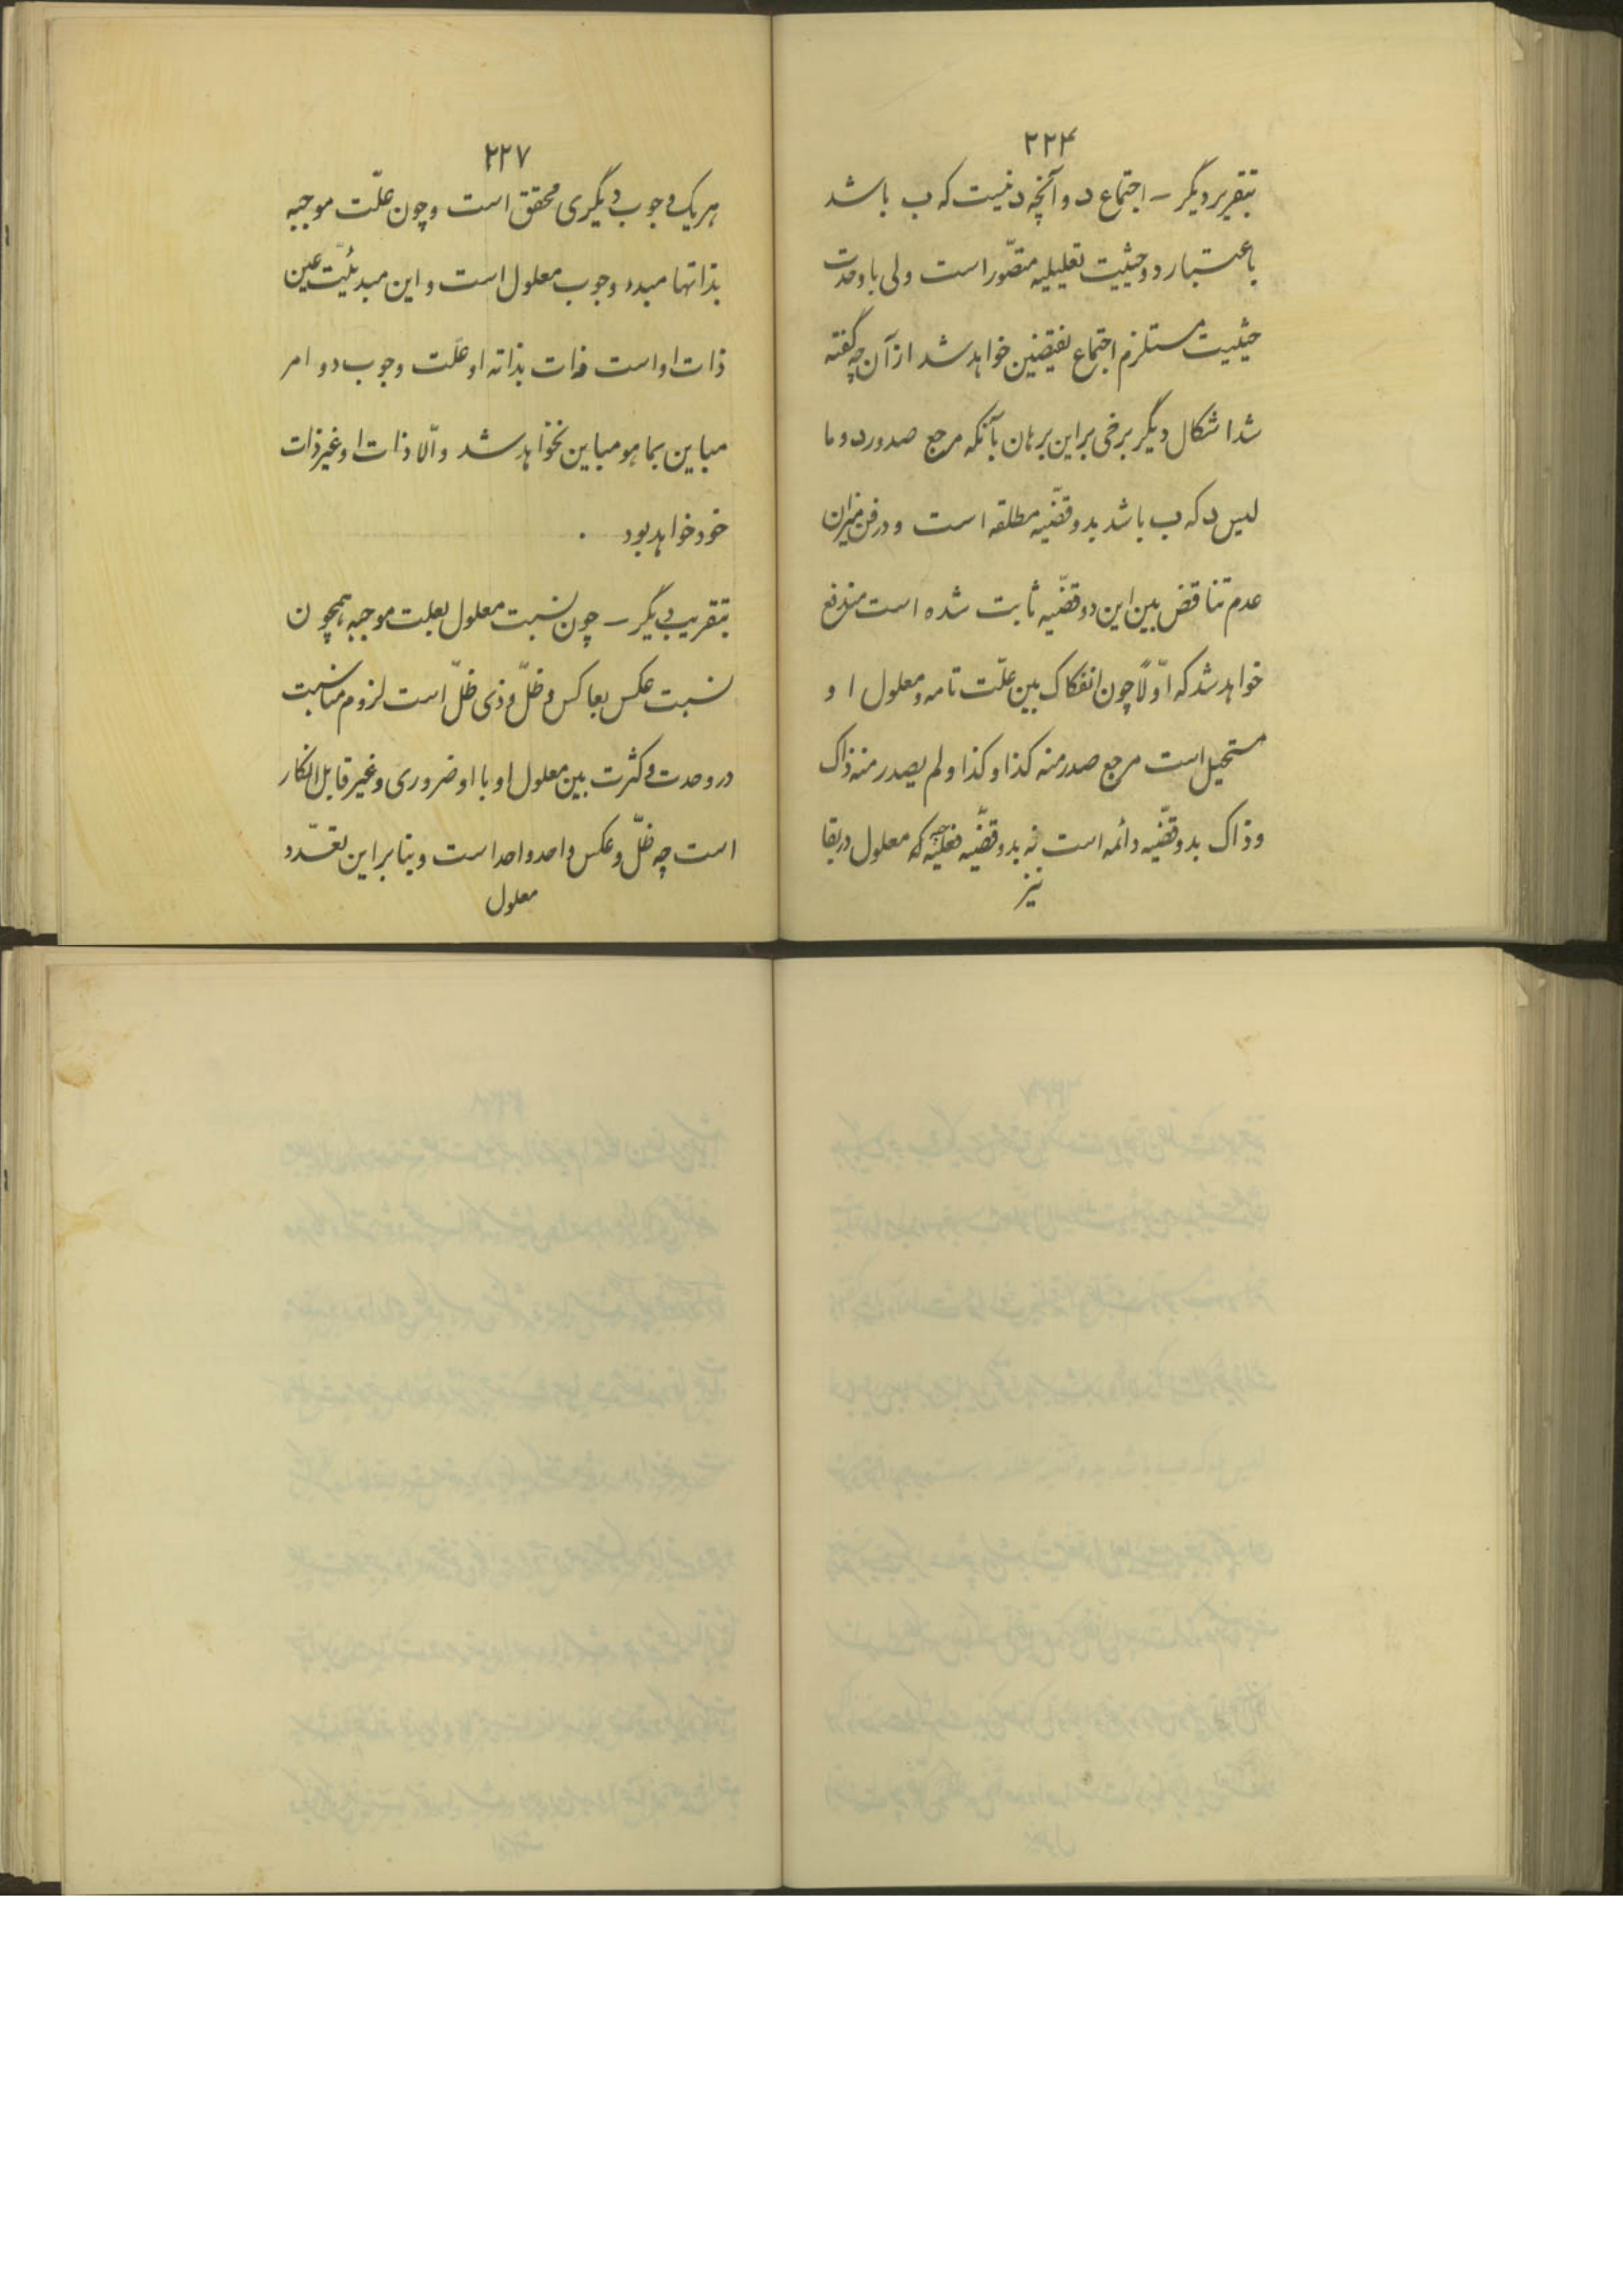 ۲۲۴
بتقریر دیگر – اجتماع د و آنچه د نیست که ب باشد
باعتبار دو حیثیت تعلیلیه متصّور است ولی با وحدت
حیثیت مستلزم اجتماع نقیضین خواهد شد از آن چه گفته
شد اشکال دیگر برخی بر این برهان بآنکه مرجع صدور د و ما
لیس د که ب باشد بدو قضّیه مطلقه است و در فن میزان
عدم تناقض بین این دو قضّیه ثابت شده است مندفع
خواهد شد که اوّلاً چون انفکاک بین علّت تامه و معلول او
مستحیل است مرجع صدر منه کذا و کذا و لم یصدر منه ذاک
و ذاک بدو قضّیه دائمه است نه بدو قضّیه فعلیّه چه که معلول در بقا
نیز
۲۲۷
هر یک وجوب دیگری محقق است و چون علّت موجبه
بذاتها مبدء وجوب معلول است و این مبدئیّت عین
ذات او است ذات بذاته او علّت وجوب دو امر
مباین بما هو مباین نخواهد شد و الّا ذات او غیر ذات
خود خواهد بود .
بتقریب دیگر – چون نسبت معلول بعلت موجبه همچون
نسبت عکس بعاکس و ظلّ و ذی ظلّ است لزوم مناسبت
در وحدت و کثرت بین معلول او با او ضروری و غیر قابل انکار
است چه ظلّ و عکس واحد واحد است و بنا بر این تعدّد
معلول